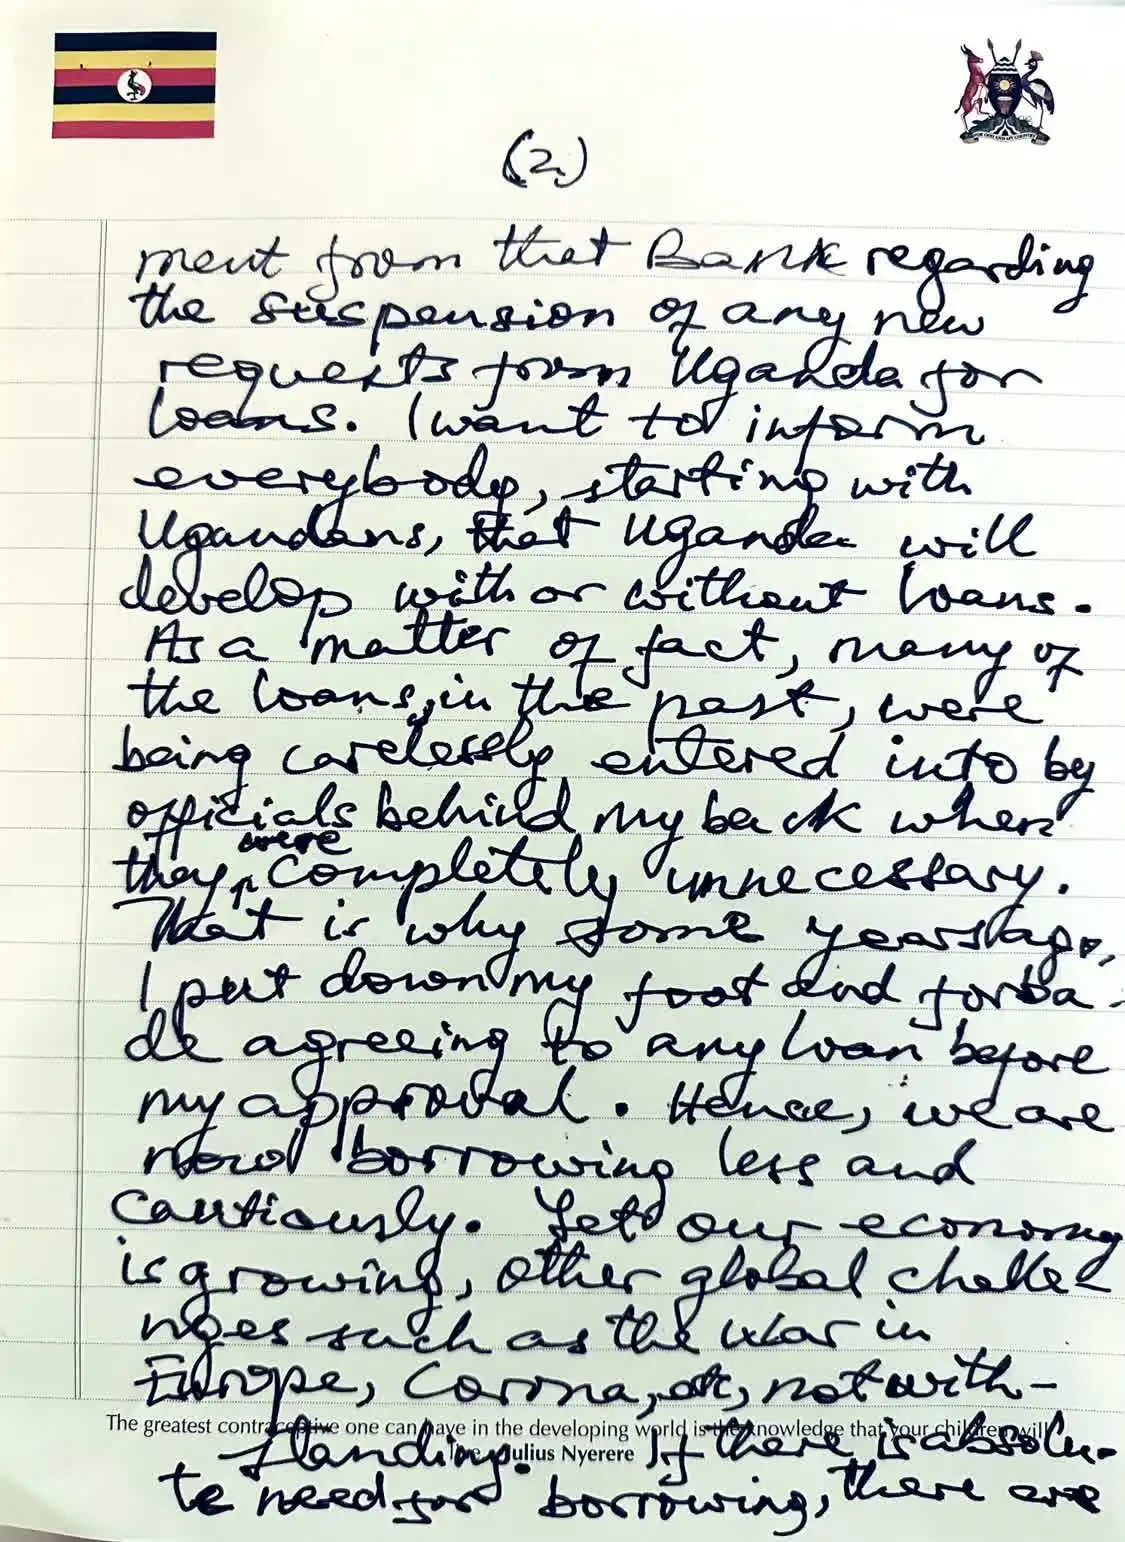 (2)
ment from that Bank regarding
the suspension of any new
requests from Uganda for
loans. I want to inform
everybody, starting with
Ugandans, that Uganda will
develop with or without loans.
As a matter of fact, many of
the loans, in the past, were
being carelessly entered into by
officials behind my back when
were
they ^ completely unnecessary.
That is why some years ago,
I put down my foot and forba-
de agreeing to any loan before
my approval. Hence, we are
now borrowing less and
cautiously. Yet our economy
is growing, other global challe-
nges such as the war in
Europe, Corona, etc, notwith-
The greatest contraceptive one can have in the developing world is the knowledge that your children will
standing. If there is absolu-
live - Julius Nyerere
te need for borrowing, there are